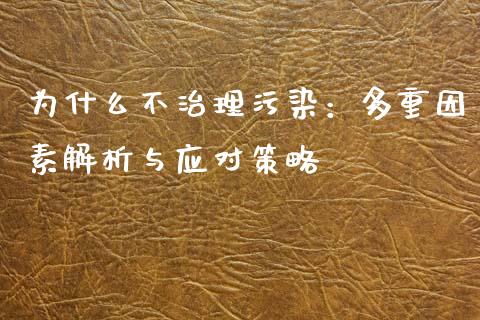 为什么不治理污染：多重因
素解析与应对策略